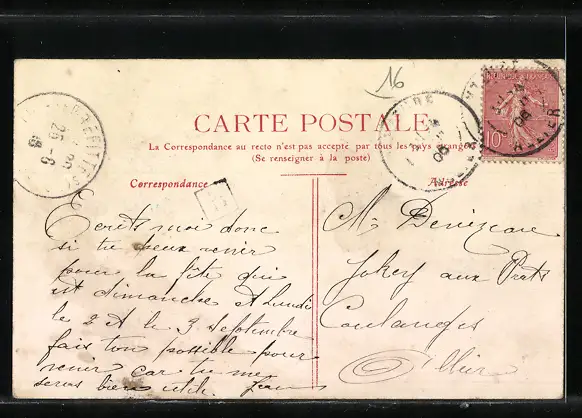 16
CARTE POSTALE
La Correspondance au recto n'est pas acceptée par tous les pays étrangers
(Se renseigner à la poste)
Correspondance
Adresse
Ecrits moi donc
si tu peux venir
pour la fête qui
est dimanche et Lundi
le 2 et le 3 Septembre
fais ton possible pour
venir car tu me
seras bien utile. Jean
M.
Jokey aux Prats
Coulanges
Allier
10
ALLIER
25-6